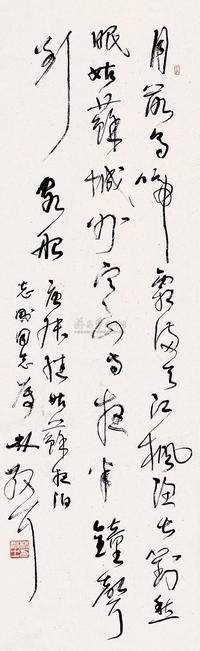 月落乌啼霜满天江枫渔火对愁
眠姑苏城外寒山寺夜半钟声
到客船 唐张继姑苏夜泊
志敏同志属 林散耳